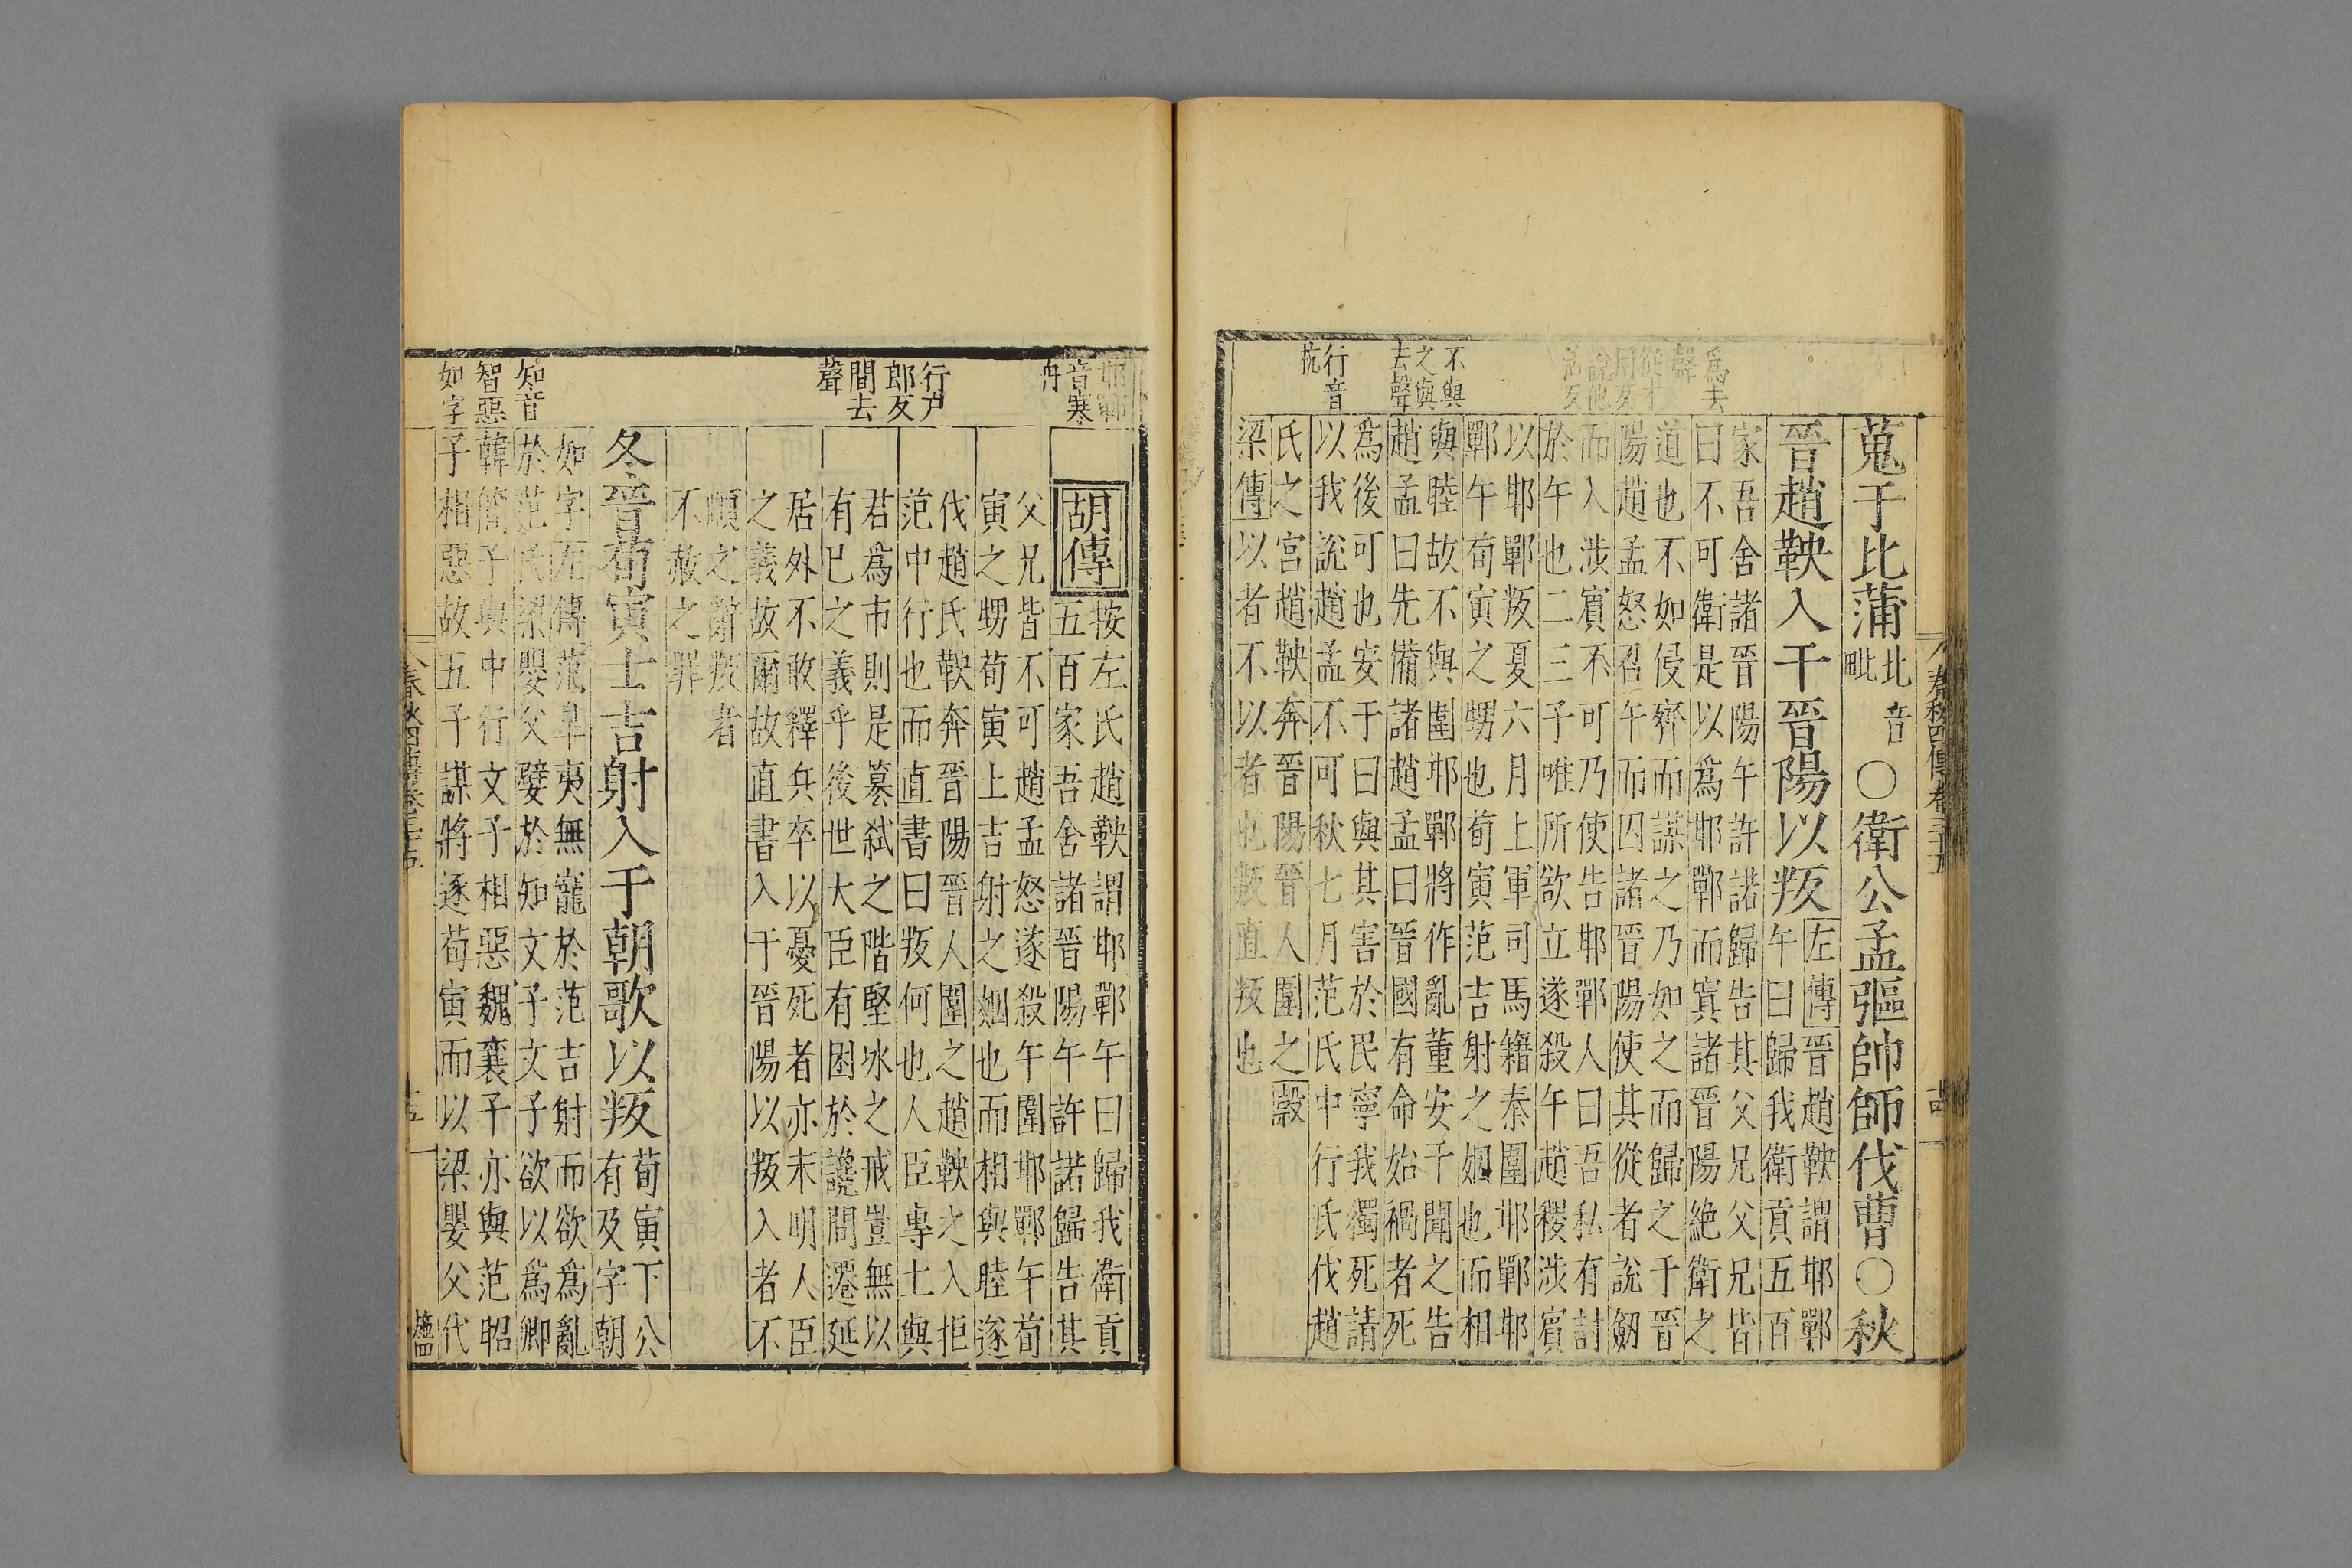 春秋四傳卷三十五
蒐于比蒲比音毗○衛公孟彄帥師伐曹○秋
晉趙鞅入于晉陽以叛左傳晉趙鞅謂邯鄲
午曰歸我衛貢五百
家吾舍諸晉陽午許諾歸告其父兄父兄皆
曰不可衛是以爲邯鄲而寘諸晉陽絶衛之
道也不如侵齊而謀之乃如之而歸之于晉
陽趙孟怒召午而囚諸晉陽使其從者說劒
而入涉賓不可乃使告邯鄲人曰吾私有討
於午也二三子唯所欲立遂殺午趙稷涉賓
以邯鄲叛夏六月上軍司馬籍秦圍邯鄲邯
鄲午荀寅之甥也荀寅范吉射之姻也而相
與睦故不與圍邯鄲將作亂董安于聞之告
趙孟曰先備諸趙孟曰晉國有命始禍者死
爲後可也安于曰與其害於民寧我獨死請
以我說趙孟不可秋七月范氏中行氏伐趙
氏之宮趙鞅奔晉陽晉人圍之穀
梁傳以者不以者也叛直叛也
爲去
聲
從才
用反
說他
活反
不與
之與
去聲
行音
抗
邯鄲
音寒
丹
行户
郎反
間去
聲
知音
智惡
如字
胡傳
按左氏趙鞅謂邯鄲午曰歸我衛貢
五百家吾舍諸晉陽午許諾歸告其
父兄皆不可趙孟怒遂殺午圍邯鄲午荀
寅之甥荀寅士吉射之姻也而相與睦遂
伐趙氏鞅奔晉陽晉人圍之趙鞅之入拒
范中行也而直書曰叛何也人臣專土與
君爲市則是篡弑之階堅冰之戒豈無以
有已之義乎後世大臣有困於讒間遷延
居外不敢釋兵卒以憂死者亦末明人臣
之義故爾故直書入于晉陽以叛入者不
順之辭叛者
不赦之罪
冬晉荀寅士吉射入于朝歌以叛荀寅下公
有及字朝
如字左傳范皐夷無寵於范吉射而欲爲亂
於范氏梁嬰父嬖於知文子文子欲以爲卿
韓簡子與中行文子相惡魏襄子亦與范昭
子相惡故五子謀將逐荀寅而以梁嬰父代